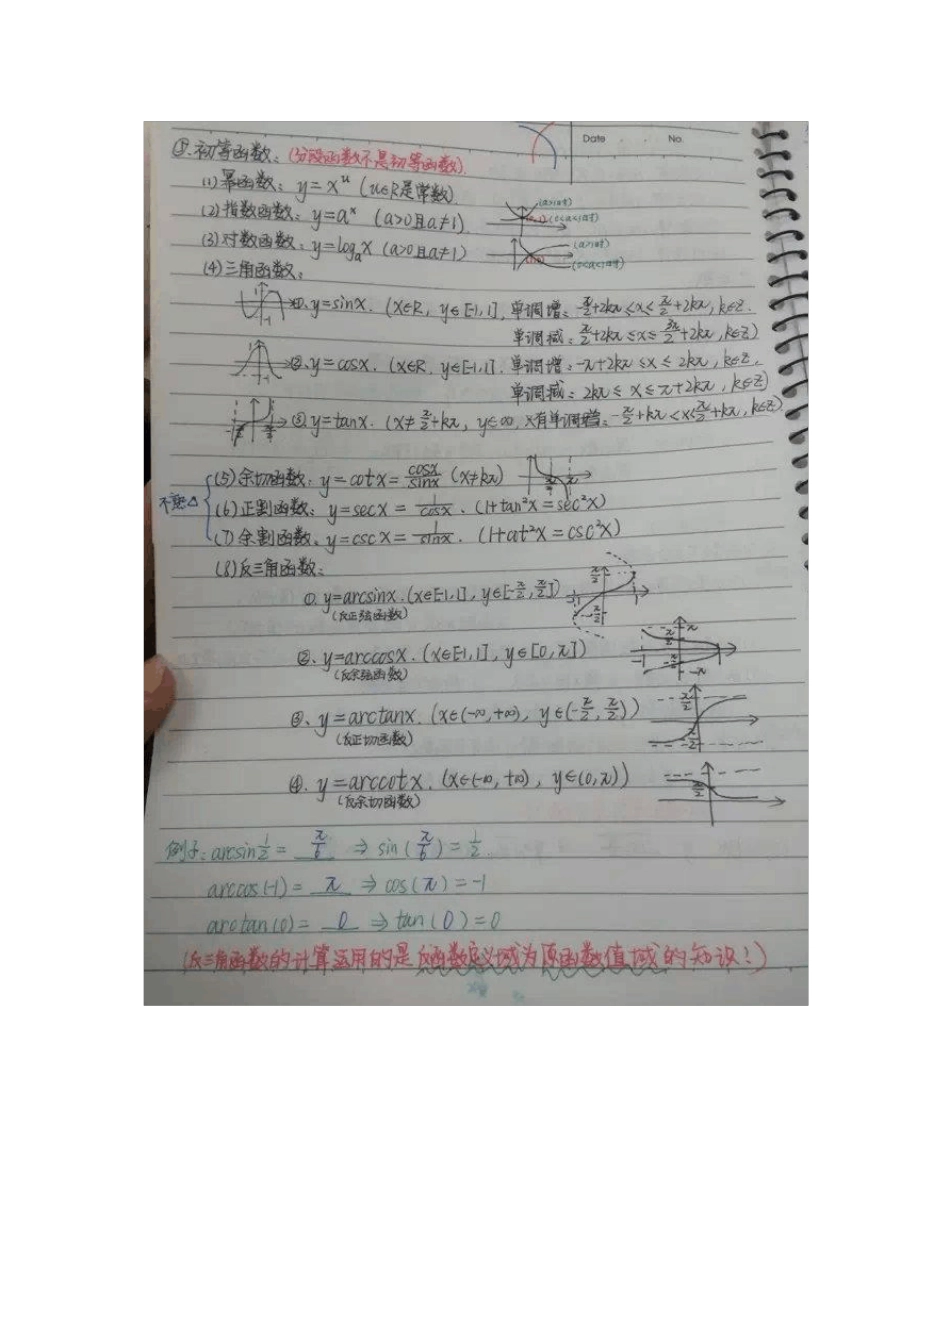 Date No.
⑤.初等函数:(分段函数不是初等函数).
(1)幂函数: y=xᵘ (u∈R是常数)
(2)指数函数: y=aˣ (a>0且a≠1) (a>1时) (0,1) (0<a<1时)
(3)对数函数: y=logₐx (a>0且a≠1) (a>1时) (0<a<1时)
(4)三角函数:
①.y=sinx. (x∈R, y∈[-1,1], 单调增: -π/2+2kπ≤x≤π/2+2kπ, k∈Z.
单调减: π/2+2kπ≤x≤3π/2+2kπ, k∈Z)
②.y=cosx. (x∈R, y∈[-1,1]. 单调增: -π+2kπ≤x≤2kπ, k∈Z.
单调减: 2kπ≤x≤π+2kπ, k∈Z)
③y=tanx. (x≠π/2+kπ, y∈∞, 只有单调增: -π/2+kπ<x<π/2+kπ, k∈Z).
(5)余切函数: y=cotx=cosx/sinx (x≠kπ)
不熟△ (6)正割函数: y=secx=1/cosx. (1+tan²x=sec²x)
(7)余割函数. y=cscx=1/sinx. (1+cot²x=csc²x)
(8)反三角函数:
①.y=arcsinx.(x∈[-1,1], y∈[-π/2,π/2]) π/2 -1 1 -π/2
(反正弦函数)
②.y=arccosx.(x∈[-1,1], y∈[0,π]) π π/2 -1 1 -π/2 -π
(反余弦函数)
③、y=arctanx.(x∈(-∞,+∞), y∈(-π/2,π/2)) π/2 -π/2
(反正切函数)
④.y=arccotx.(x∈(-∞,+∞), y∈(0,π)) π/2
(反余切函数)
例子: arcsin1/2=π/6 ⇒ sin(π/6)=1/2.
arccos(-1)=π ⇒ cos(π)=-1
arctan(0)=0 ⇒ tan(0)=0
(反三角函数的计算运用的是反函数定义域为原函数值域的知识!)